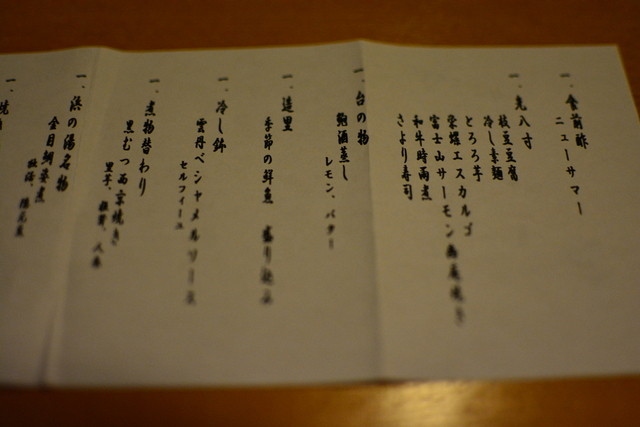 一、食前酢
ニューサマー
一、先八寸
枝豆豆腐
冷し素麺
とろろ芋
栄螺エスカルゴ
富士山サーモン西京焼き
和牛時雨煮
さより寿司
一、台の物
鮑酒蒸し
レモン、バター
一、造里
季節の鮮魚 盛り込み
一、冷し鉢
雲丹ベシャメルソース
セルフィーユ
一、煮物替わり
黒むつ西京焼き
一、浜の湯名物
金目鯛姿煮